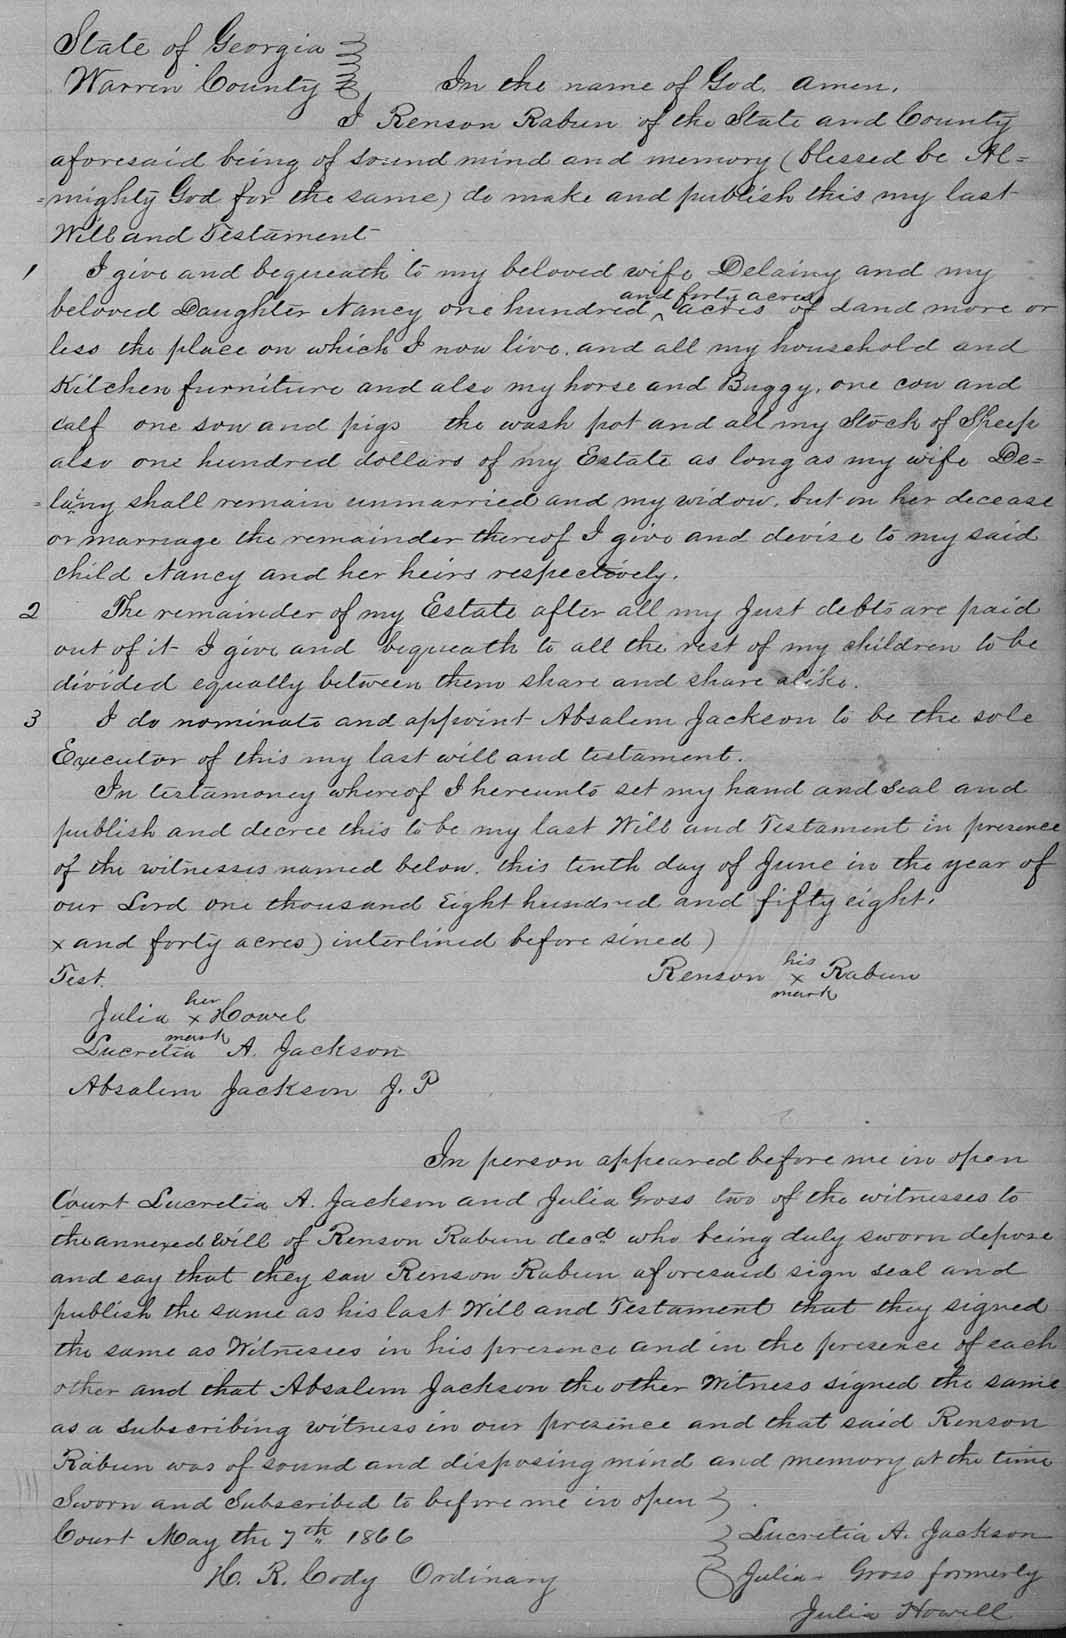 State of Georgia
Warren County In the name of God, amen.
I Renson Rabun of the State and County
aforesaid being of sound mind and memory (blessed be Al=
=mighty God for the same) do make and publish this my last
Will and Testament
1 I give and bequeath to my beloved wife Delainy and my
and forty acres
beloved Daughter Nancy one hundred ^ acres of Land more or
less the place on which I now live, and all my household and
Kitchen furniture and also my horse and Buggy, one cow and
calf one sow and pigs the wash pot and all my Stock of Sheep
also one hundred dollars of my Estate as long as my wife De=
=lainy shall remain unmarried and my widow, but on her decease
or marriage the remainder thereof I give and devise to my said
child Nancy and her heirs respectively.
2 The remainder of my Estate after all my Just debts are paid
out of it I give and bequeath to all the rest of my children to be
divided equally between them share and share alike.
3 I do nominate and appoint Absalem Jackson to be the sole
Executor of this my last will and testament.
In testamoney whereof I hereunto set my hand and seal and
publish and decree this to be my last Will and Testament in presence
of the witnesses named below, this tenth day of June in the year of
our Lord one thousand Eight hundred and fifty eight.
x and forty acres) interlined before sined)
Test. Renson his x mark Rabun
Julia her x mark Howel
Lucretia A. Jackson
Absalem Jackson J. P
In person appeared before me in open
Court Lucretia A. Jackson and Julia Gross two of the witnesses to
the annexed Will of Renson Rabun decd who being duly sworn depose
and say that they saw Renson Rabun aforesaid sign seal and
publish the same as his last Will and Testament that they signed
the same as Witnesses in his presence and in the presence of each
other and that Absalem Jackson the other Witness signed the same
as a subscribing witness in our presence and that said Renson
Rabun was of sound and disposing mind and memory at the time
Sworn and Subscribed to before me in open
Court May the 7th 1866 Lucretia A. Jackson
H. R. Cody Ordinary Julia Gross formerly
Julia Howell